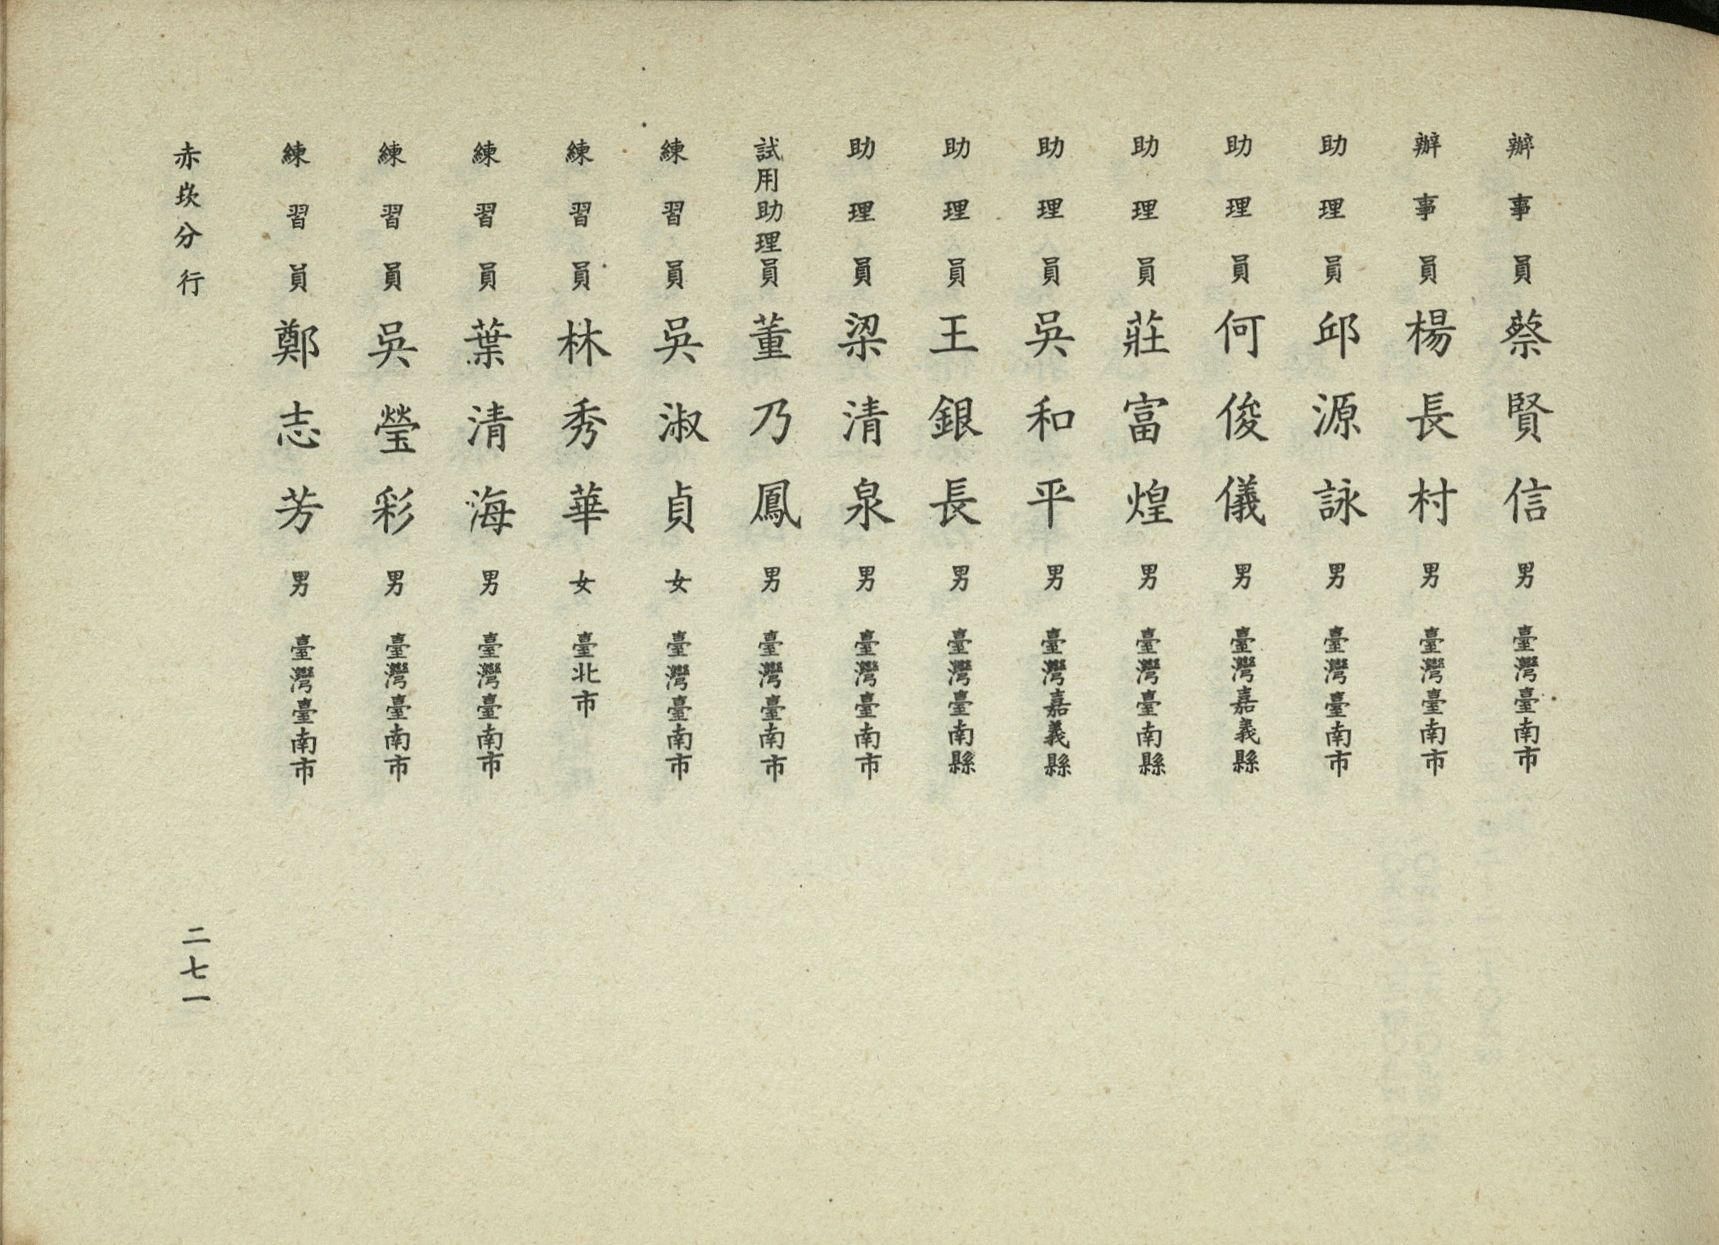 辦事員蔡賢信男臺灣臺南市
辦事員楊長村男臺灣臺南市
助理員邱源詠男臺灣臺南市
助理員何俊儀男臺灣嘉義縣
助理員莊富煌男臺灣臺南縣
助理員吳和平男臺灣嘉義縣
助理員王銀長男臺灣臺南縣
助理員梁清泉男臺灣臺南市
試用助理員董乃鳳男臺灣臺南市
練習員吳淑貞女臺灣臺南市
練習員林秀華女臺北市
練習員葉清海男臺灣臺南市
練習員吳瑩彩男臺灣臺南市
練習員鄭志芳男臺灣臺南市
赤崁分行
二七一